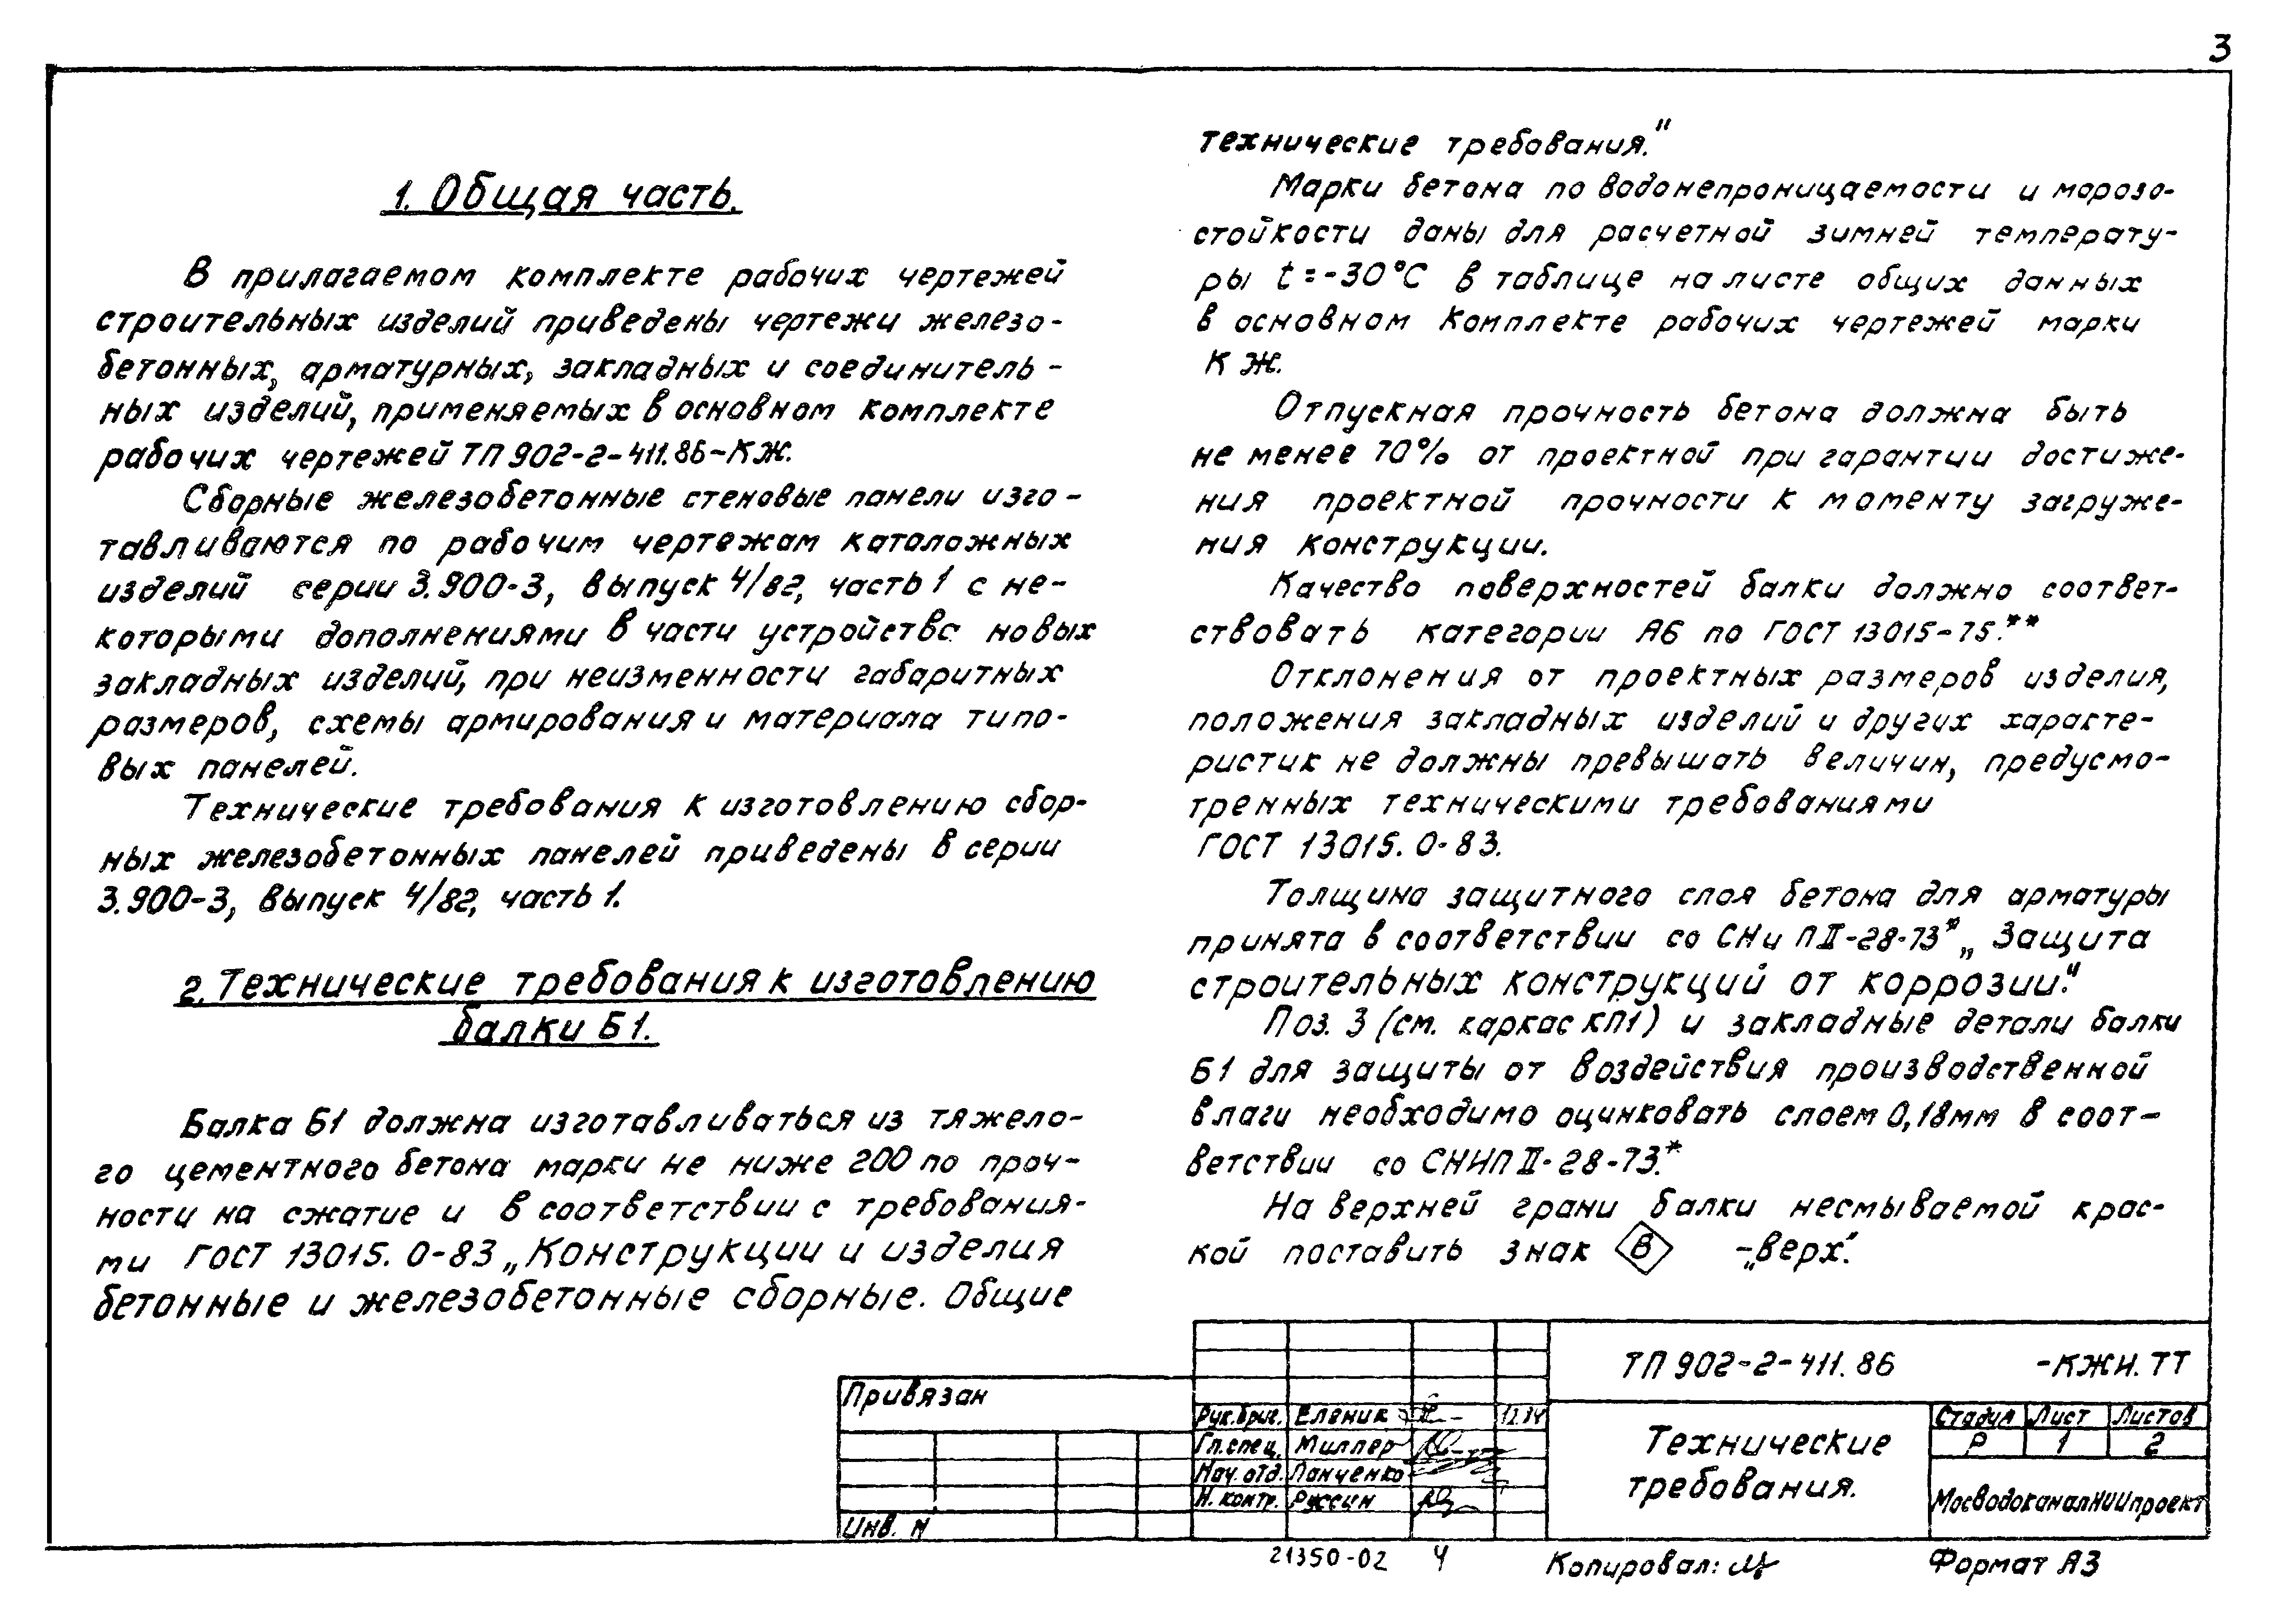 3
1. Общая часть.
В прилагаемом комплекте рабочих чертежей
строительных изделий приведены чертежи железо-
бетонных, арматурных, закладных и соединитель-
ных изделий, применяемых в основном комплекте
рабочих чертежей ТП 902-2-411.86-КЖ.
Сборные железобетонные стеновые панели изго-
тавливаются по рабочим чертежам каталожных
изделий серии 3.900-3, выпуск 4/82, часть 1 с не-
которыми дополнениями в части устройства новых
закладных изделий, при неизменности габаритных
размеров, схемы армирования и материала типо-
вых панелей.
Технические требования к изготовлению сбор-
ных железобетонных панелей приведены в серии
3.900-3, выпуск 4/82, часть 1.
2. Технические требования к изготовлению
балки Б1.
Балка Б1 должна изготавливаться из тяжело-
го цементного бетона марки не ниже 200 по проч-
ности на сжатие и в соответствии с требования-
ми ГОСТ 13015.0-83 „Конструкции и изделия
бетонные и железобетонные сборные. Общие
технические требования."
Марки бетона по водонепроницаемости и морозо-
стойкости даны для расчетной зимней температу-
ры t=-30°С в таблице на листе общих данных
в основном комплекте рабочих чертежей марки
КЖ.
Отпускная прочность бетона должна быть
не менее 70% от проектной при гарантии достиже-
ния проектной прочности к моменту загруже-
ния конструкции.
Качество поверхностей балки должно соответ-
ствовать категории А6 по ГОСТ 13015-75.**
Отклонения от проектных размеров изделия,
положения закладных изделий и других характе-
ристик не должны превышать величин, предусмо-
тренных техническими требованиями
ГОСТ 13015.0-83.
Толщина защитного слоя бетона для арматуры
принята в соответствии со СНиП II-28-73* „Защита
строительных конструкций от коррозии."
Поз. 3 (см. каркас КП1) и закладные детали балки
Б1 для защиты от воздействия производственной
влаги необходимо оцинковать слоем 0,18мм в соот-
ветствии со СНИП II-28-73.*
На верхней грани балки несмываемой крас-
кой поставить знак В -„верх".
ТП 902-2-411.86 -КЖИ.ТТ
Привязан
Рук.бриг. Еленик
Гл.спец. Миллер
Нач.отд. Панченко
Н.контр. Руссин
Инв. N
Технические
требования.
Стадия Лист Листов
Р 1 2
МосводоканалНИИпроект
21350-02 4
Копировал:
Формат А3